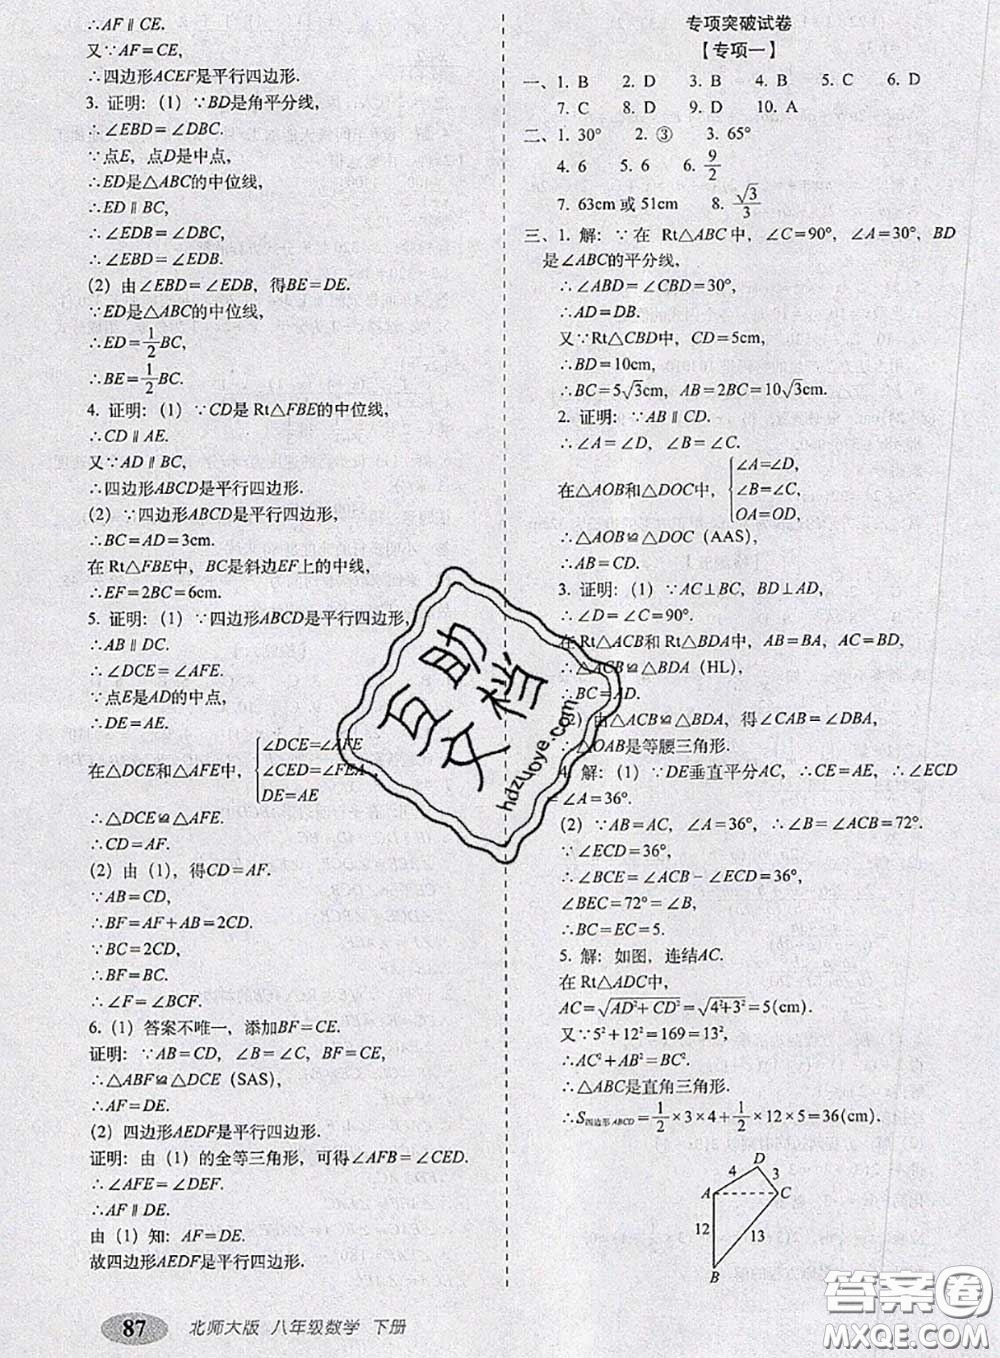 ∴AF∥CE.
又∵AF=CE,
∴四边形ACEF是平行四边形.
3. 证明:(1) ∵BD是角平分线,
∴∠EBD=∠DBC.
∵点E,点D是中点,
∴ED是△ABC的中位线,
∴ED∥BC,
∴∠EDB=∠DBC,
∴∠EBD=∠EDB.
(2) 由∠EBD=∠EDB,得BE=DE.
∵ED是△ABC的中位线,
∴ED=1/2BC,
∴BE=1/2BC.
4. 证明:(1) ∵CD是 Rt△FBE的中位线,
∴CD∥AE.
又∵AD∥BC,
∴四边形ABCD是平行四边形.
(2) ∵四边形ABCD是平行四边形,
∴BC=AD=3cm.
在 Rt△FBE中,BC是斜边EF上的中线,
∴EF=2BC=6cm.
5. 证明:(1) ∵四边形ABCD是平行四边形,
∴AB∥DC.
∴∠DCE=∠AFE.
∵点E是AD的中点,
∴DE=AE.
在△DCE和△AFE中, {∠DCE=∠AFE
∠CED=∠FEA,
DE=AE
∴△DCE≌△AFE.
∴CD=AF.
(2) 由(1),得CD=AF.
∵AB=CD,
∴BF=AF+AB=2CD.
∵BC=2CD,
∴BF=BC.
∴∠F=∠BCF.
6. (1) 答案不唯一,添加BF=CE.
证明:∵AB=CD,∠B=∠C,BF=CE,
∴△ABF≌△DCE(SAS).
∴AF=DE.
(2) 四边形AEDF是平行四边形.
证明:由(1)的全等三角形,可得∠AFB=∠CED.
∴∠AFE=∠DEF.
∴AF∥DE.
由(1)知:AF=DE.
故四边形AEDF是平行四边形.
专项突破试卷
【专项一】
一、1. B 2. D 3. B 4. B 5. C 6. D
7. C 8. D 9. D 10. A
二、1. 30° 2. ③ 3. 65°
4. 6 5. 6 6. 9/2
7. 63cm 或 51cm 8. √3/3
三、1. 解:∵在 Rt△ABC中,∠C=90°,∠A=30°,BD
是∠ABC的平分线,
∴∠ABD=∠CBD=30°,
∴AD=DB.
又∵Rt△CBD中,CD=5cm,
∴BD=10cm,
∴BC=5√3cm,AB=2BC=10√3cm.
2. 证明:∵AB∥CD.
∴∠A=∠D,∠B=∠C.
在△AOB和△DOC中, {∠A=∠D,
∠B=∠C,
OA=OD,
∴△AOB≌△DOC(AAS),
∴AB=CD.
3. 证明:(1) ∵AC⊥BC,BD⊥AD,
∴∠D=∠C=90°.
在 Rt△ACB和 Rt△BDA中,AB=BA,AC=BD,
∴△ACB≌△BDA(HL),
∴BC=AD.
(2) 由△ACB≌△BDA,得∠CAB=∠DBA,
∴△OAB是等腰三角形.
4. 解:(1) ∵DE垂直平分AC,∴CE=AE,∴∠ECD
=∠A=36°.
(2) ∵AB=AC,∠A=36°,∴∠B=∠ACB=72°.
∵∠ECD=36°,
∴∠BCE=∠ACB-∠ECD=36°,
∠BEC=72°=∠B,
∴BC=EC=5.
5. 解:如图,连结AC.
在 Rt△ADC中,
AC=√(AD²+CD²)=√(4²+3²)=5(cm)
又∵5²+12²=169=13²,
∴AC²+AB²=BC².
∴△ABC是直角三角形.
∴S四边形ABCD=1/2×3×4+1/2×12×5=36(cm).
D
4 3
A C
12 13
B
87 北师大版 八年级数学 下册
互助
文档
hdzuoye.com
答案圈
MXQE.COM